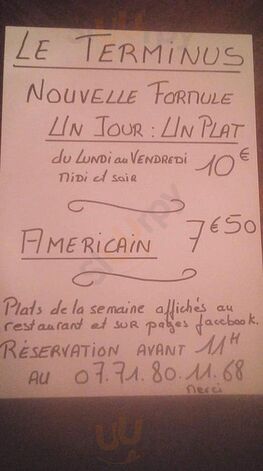 LE TERMINUS
NOUVELLE FORMULE
UN JOUR : UN PLAT
DU LUNDI au VENDREDI 10€
MIDI et soir
AMERICAIN 7€50
Plats de la semaine affichés au
restaurant et sur pages facebook.
RÉSERVATION AVANT 11H
AU 07.71.80.11.68
Merci